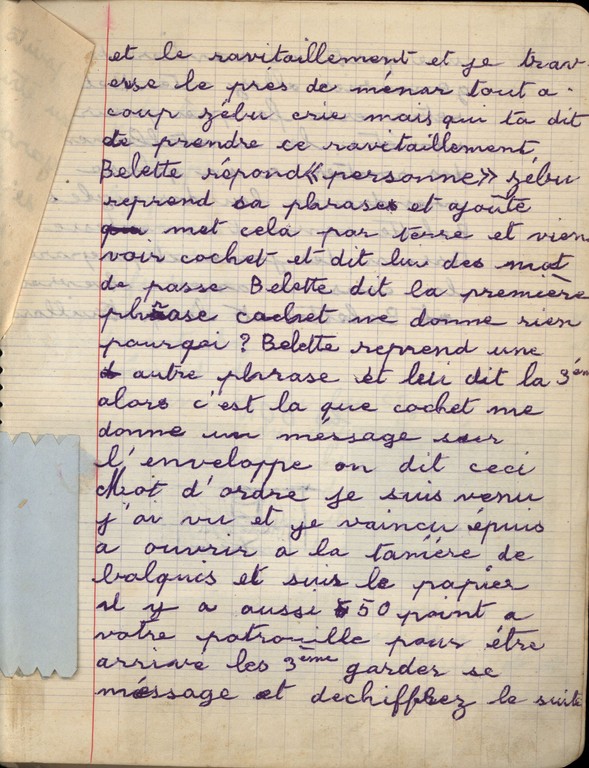 et le ravitaillement et je trav-
erse le prés de ménar tout a
coup zébu crie mais qui ta dit
de prendre ce ravitaillement
Belette répond «personne» zébu
reprend sa phrases et ajoute
met cela par terre et vien
voir cochet et dit lui des mot
de passe Belette dit la première
phrase cachet ne donne rien
pourqoi ? Belette reprend une
autre phrase et lui dit la 3ém
alors c'est la que cochet me
donne un méssage sur
l'enveloppe on dit ceci
Mot d'ordre je suis venu
j'ai vu et je vaincu épuis
a ouvrir a la taniére de
balquis et suis le papier
il y a aussi 50 point a
votre patrouille pour étre
arrive les 3ème garder se
méssage et dechiffrez la suite